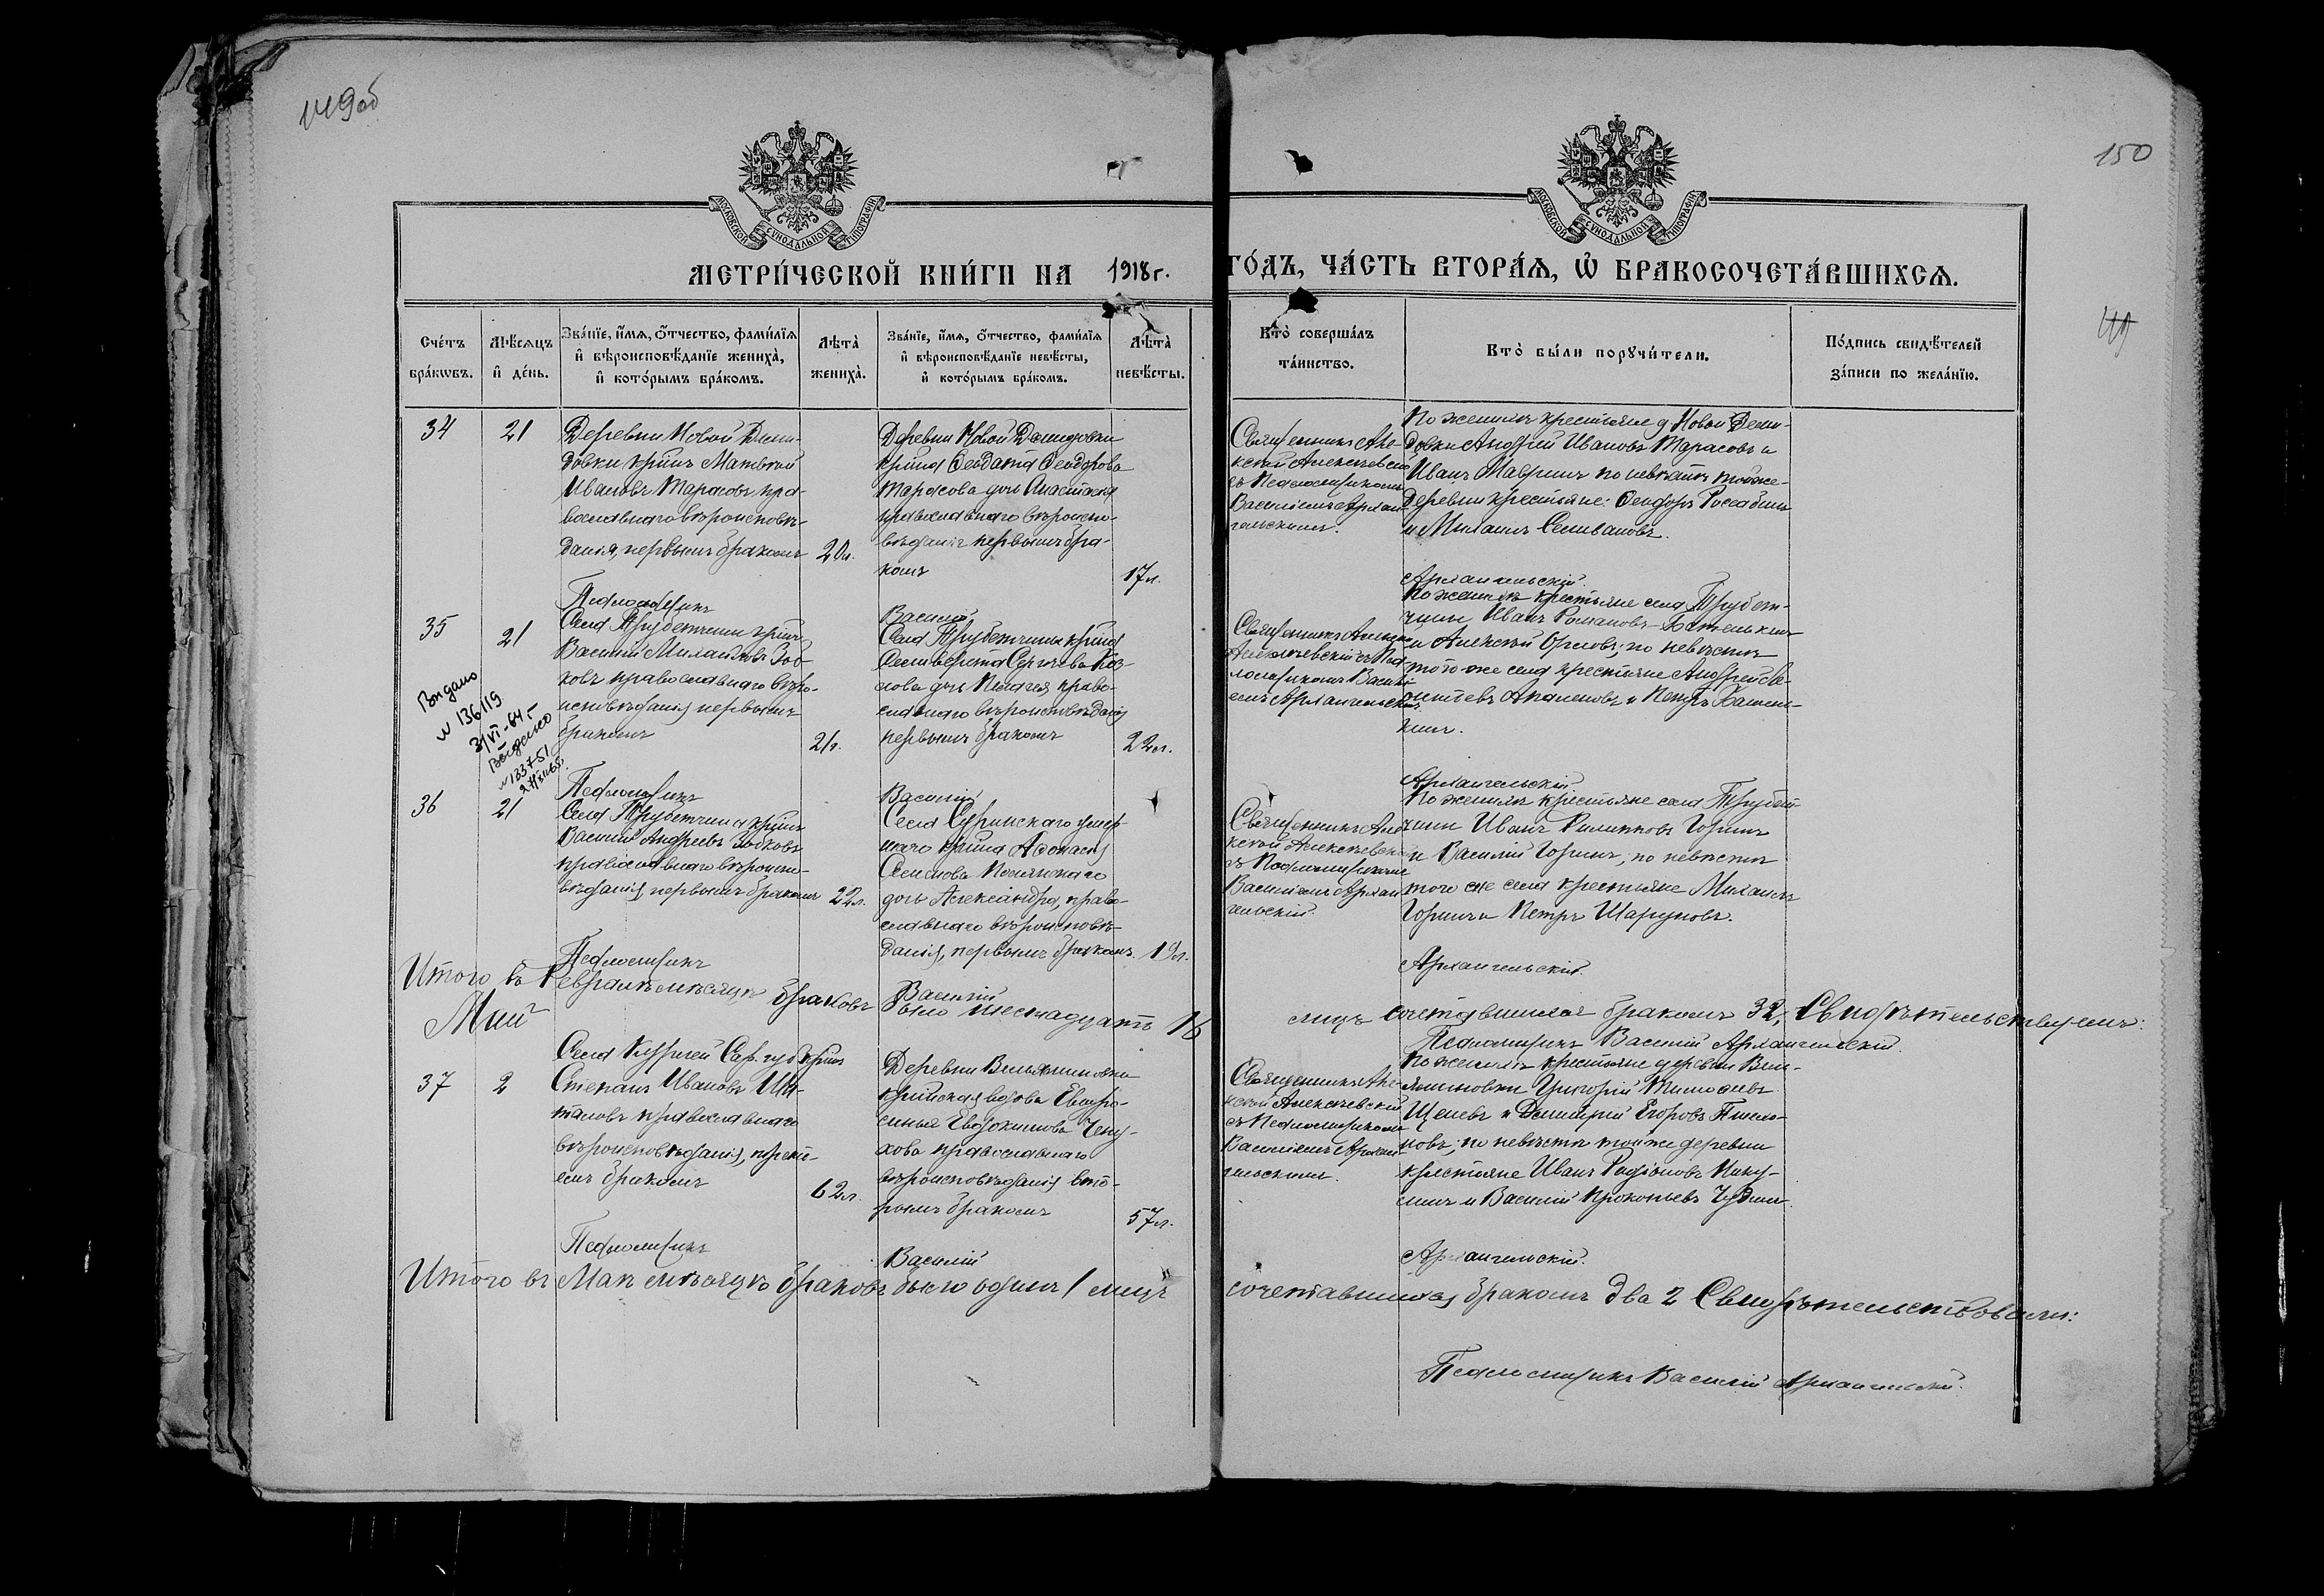 149об
150
МОСКОВСКОЙ СУНОДАЛЬНОЙ ТИПОГРАФІИ
МОСКОВСКОЙ СУНОДАЛЬНОЙ ТИПОГРАФІИ
МЕТРИ́ЧЕСКОЙ КНИ́ГИ НА 1918 г.
ГО́ДЪ, ЧА́СТЬ ВТОРА́Я, Ѡ БРАКОСОЧЕТА́ВШИХСЯ.
Сче́тъ бра́кѡвъ.
Мѣ́сяцъ и де́нь.
Зва́нїе, и́мя, ѻ́тчество, фами́лїя и вѣроисповѣ́данїе жениха̀, и кото́рымъ бра́комъ.
Лѣта̀ жениха̀.
Зва́нїе, и́мя, ѻ́тчество, фами́лїя и вѣроисповѣ́данїе невѣ́сты, и кото́рымъ бра́комъ.
Лѣта̀ невѣ́сты.
Кто̀ соверша́лъ та́инство.
Кто̀ бы́ли порꙋчи́тели.
По́дпись свидѣ́телей за́писи по жела́нїю.
34
21
Деревни Новой Деми-
довки кр-нъ Матвѣй
Ивановъ Тарасовъ пра-
вославнаго вѣроисповѣ-
данія, первымъ бракомъ
20л.
Деревни Новой Демидовки
Ѳеодорова
Тарасова дочь Анастасія
православнаго вѣроиспо-
вѣданія первымъ бра-
комъ
17л.
Священникъ Але-
ксѣй Алексѣевскій
съ Псаломщикомъ
Василіемъ Архан
гельскимъ.
По женихѣ крестьяне д Новой Деми-
довки Андрей Ивановъ Тарасовъ и
Иванъ Мавринъ по невѣстѣ той же
деревни крестьяне: Ѳеодоръ
и Михаилъ Селивановъ.
Псаломщикъ
Василій
Архангельскій.
35
21
Села Трубетчины кр-нъ
Василій Михайловъ Зоб-
ковъ православнаго вѣро-
исповѣданія первымъ
бракомъ
21л.
Села Трубетчины кр-на
Селиверста Сергѣева Коз-
лова дочь Пелагея право-
славнаго вѣроисповѣданія
первымъ бракомъ
22л.
Священникъ Алексѣй
Алексѣевскій съ Пса-
ломщикомъ Васили-
емъ Архангельскимъ
По женихѣ крестьяне села Трубет-
чины Иванъ Романовъ
и Алексѣй Орловъ; по невѣстѣ
того-же села крестьяне Андрей Ле-
онтьевъ и Петръ
кинъ.
Выдано
N 136119
3/VI-64г.
Выдано
N 133751
Псаломщикъ
Василій
Архангельскій
36
21
Села Трубетчины кр-нъ
Василій Андреевъ Зобковъ
православнаго вѣроиспо-
вѣданія, первымъ бракомъ
22л.
Села Сухинскаго умер-
шаго кр-на Аѳанасія
Семенова
дочь Александра, право-
славнаго вѣроисповѣ-
данія, первымъ бракомъ.
19л.
Священникъ Але
ксѣй Алексѣевскій
съ Псаломщикомъ
Василіемъ Архан
гельскій.
По женихѣ крестьяне села Трубет-
чины Иванъ Филипповъ Горинъ
и Василій Горинъ, по невѣстѣ
того же села крестьяне Михаилъ
Горинъ и Петръ Шаруновъ.
Псаломщикъ
Василій
Архангельскій.
Итого въ Февралѣ мѣсяцѣ браковъ было шестнадцать 16
лицъ сочетавшихся бракомъ 32, Свидѣтельствуемъ:
Псаломщикъ Василій Архангельскій.
Май
37
2
Села Сар. губ кр-нъ
Степанъ Ивановъ
православнаго
вѣроисповѣданія, треть-
емъ бракомъ
62л.
Деревни Вельяминовки
кр-нская вдова Евфро-
синья Евдокимова
православнаго
вѣроисповѣданія вто-
рымъ бракомъ
57л.
Священникъ Але-
ксѣй Алексѣевскій
съ Псаломщикомъ
Василіемъ Архан
гельскимъ.
По женихѣ крестьяне деревни Вель-
яминовки Григорій Тимофеевъ
и Димитрій Егоровъ
по невѣстѣ той же деревни
крестьяне Иванъ Родіоновъ
и Василій Прокопьевъ
Псаломщикъ
Василій
Архангельскій.
Итого въ Маѣ мѣсяцѣ браковъ было одинъ 1 лицъ
сочетавшихся бракомъ два 2 Свидѣтельствовали:
Псаломщикъ Василій Архангельскій.